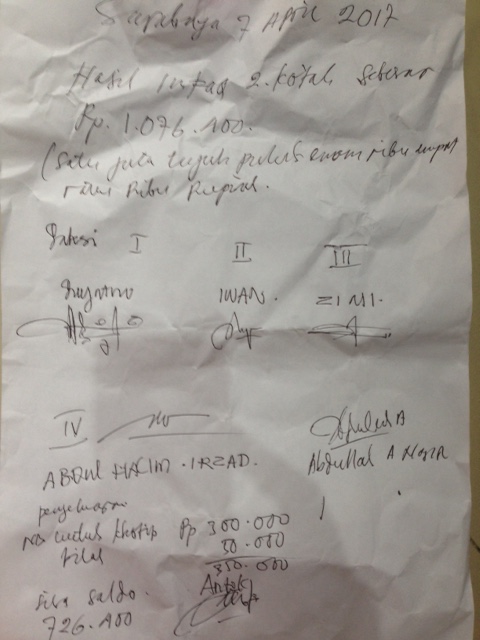 Surabaya 7 April 2017
Hasil infaq 2. kotak sebesar
Rp. 1.076.400.
(Satu juta tujuh puluh enam ribu empat
ratus Ribu Rupiah.
Saksi I II III
IWAN. ZINI.
IV
ABDUL HALIM . IRZAD.
Abdullah A
penyeluaran
untuk khotip Rp 300.000
50.000
350.000
sisa saldo.
726.400